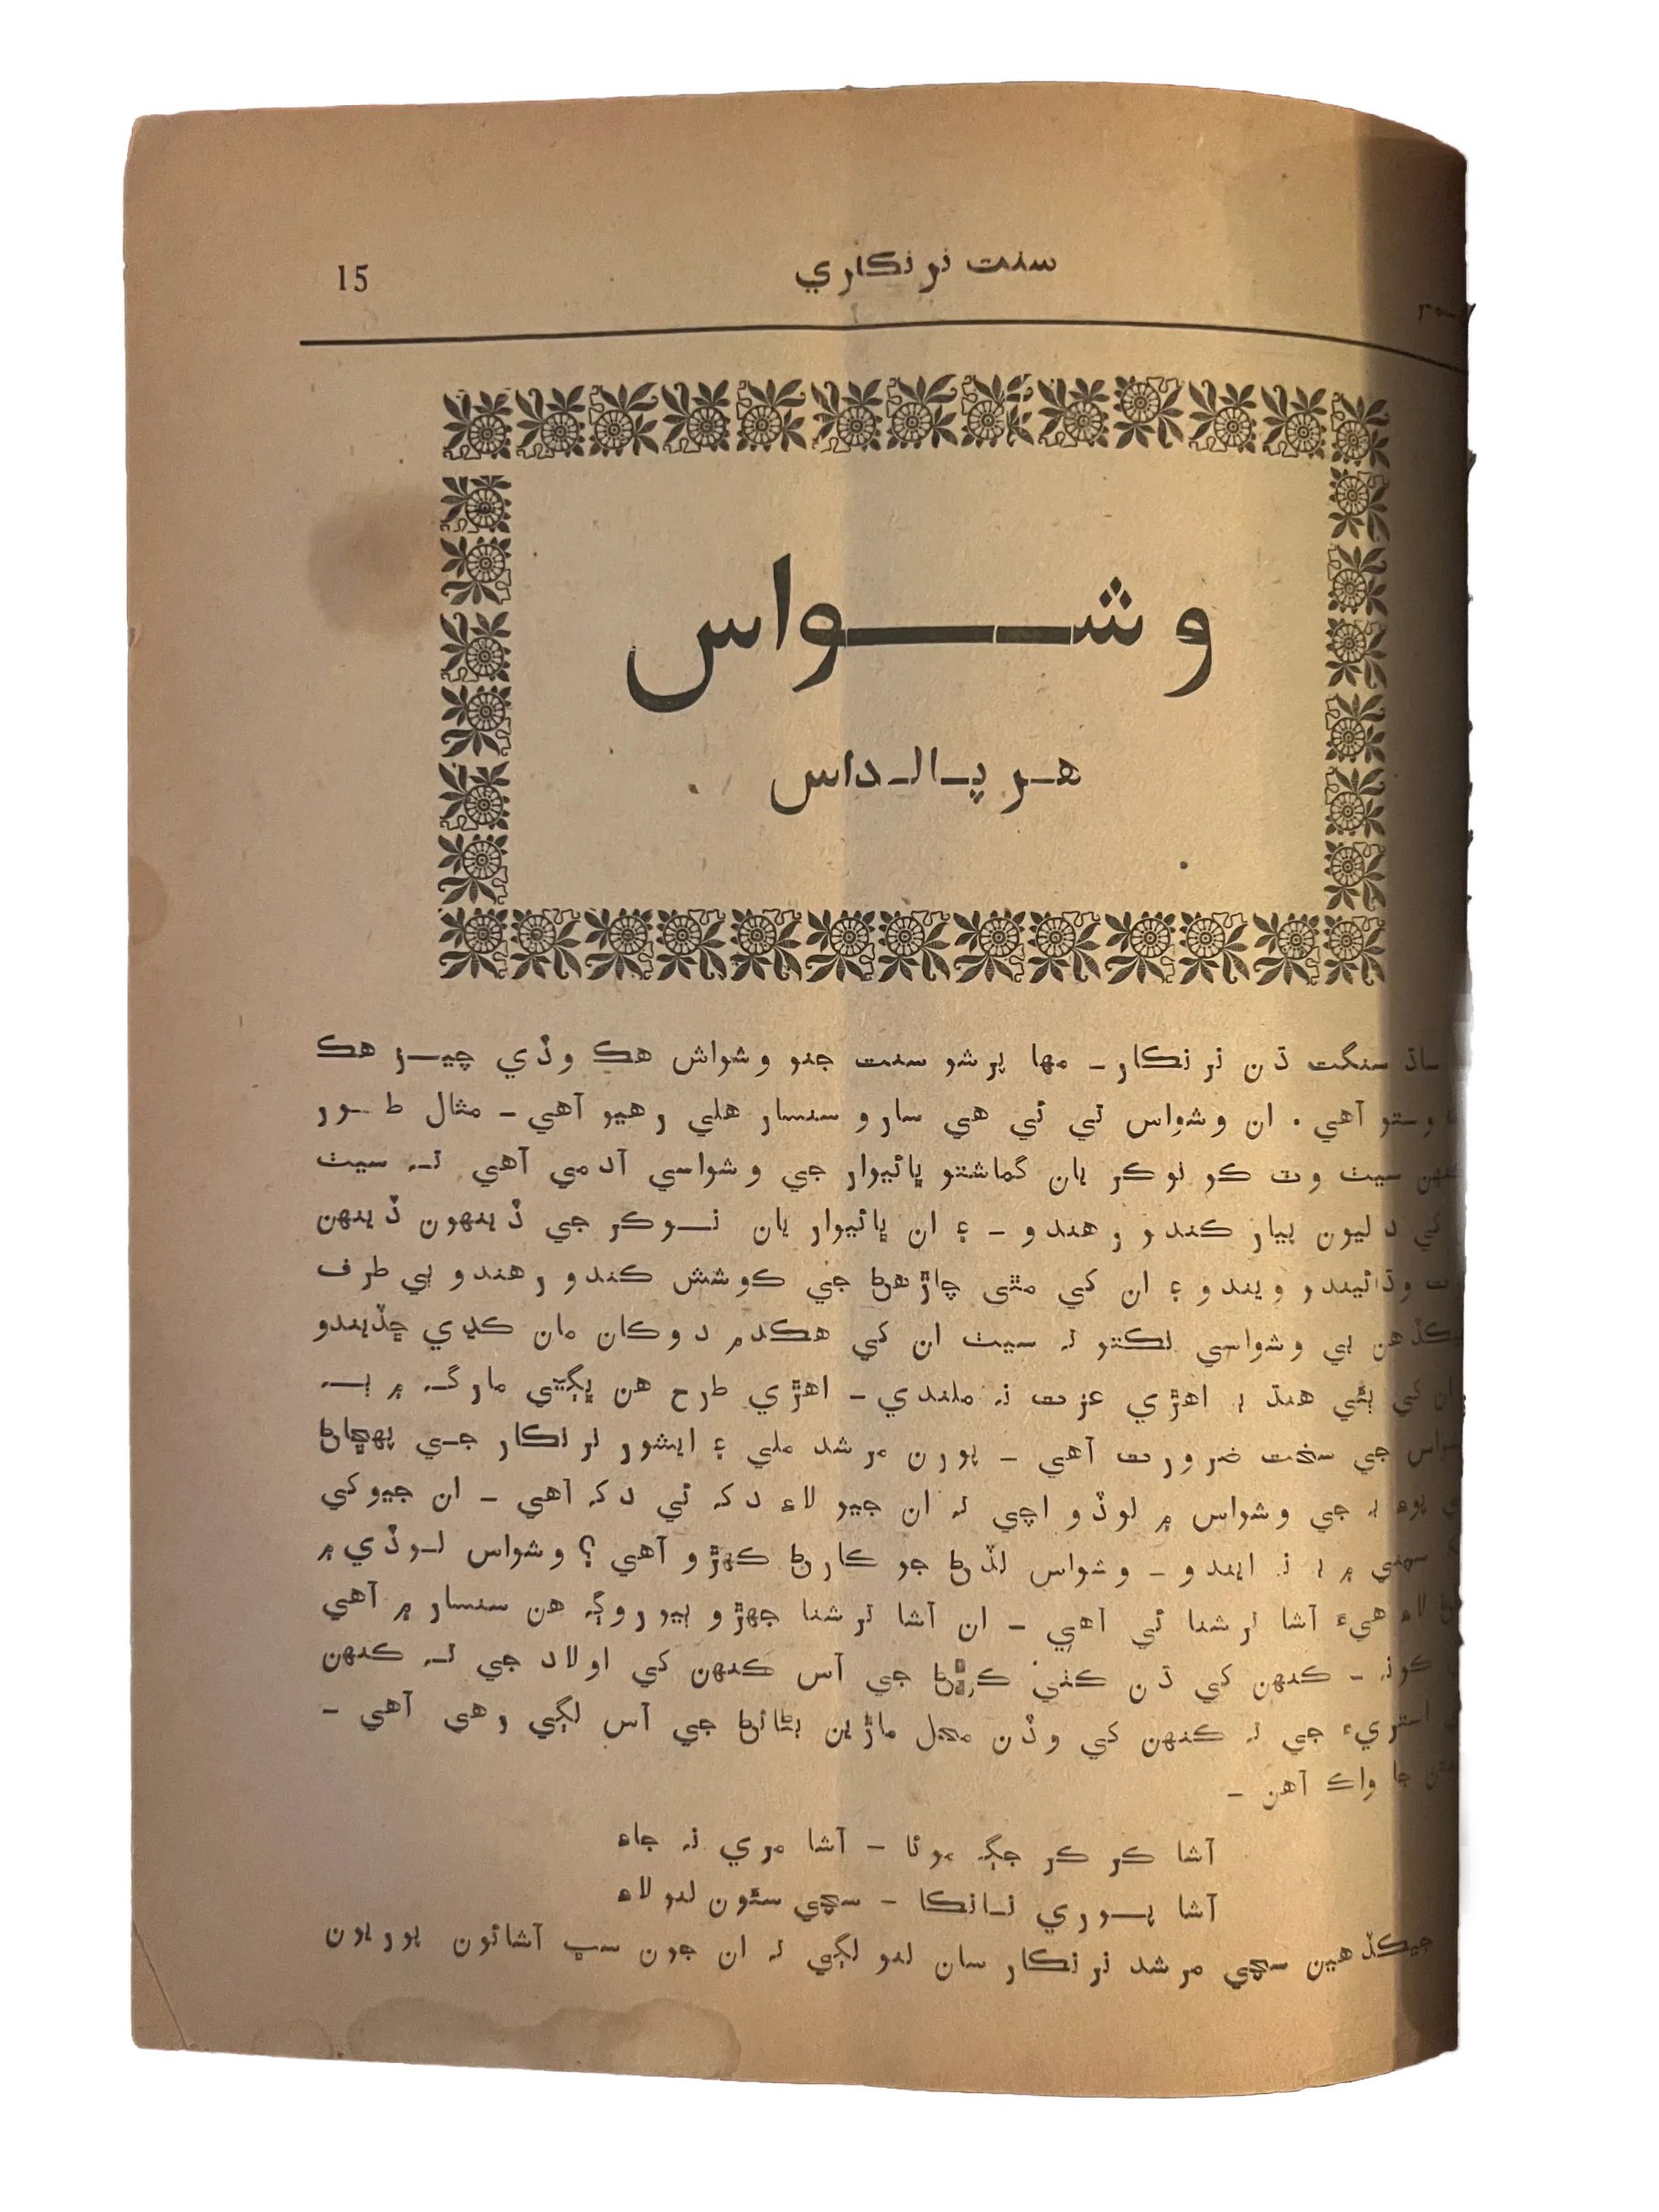 سنت نرنڪاري
15
وشواس
هرپالداس
ساڌ سنگت ڌن نرنڪار ـ مها پرشو سنت جنو وشواش هڪ وڏي چيز هڪ
وستو آهي . ان وشواس تي ئي هي سارو سنسار هلي رهيو آهي ـ مثال طور
سيٺ وٽ ڪو نوڪر يان گماشتو ڀائيوار جي وشواسي آدمي آهي تہ سيٺ
کي دليون پيار ڪندو رهندو ـ ۽ ان ڀائيوار يان نوڪر جي ڏينهون ڏينهن
وڌائيندو ويندو ۽ ان کي مٿي چاڙهڻ جي ڪوشش ڪندو رهندو ٻي طرف
جيڪڏهن بي وشواسي نڪتو تہ سيٺ ان کي هڪدم دوڪان مان ڪڍي ڇڏيندو
ان کي ٻئي هنڌ بہ اهڙي عزت نہ ملندي ـ اهڙي طرح هن ڀڳتي مارگہ ۾ بہ
جي سخت ضرورت آهي ـ پورن مرشد ملي ۽ ايشور نرنڪار جي پهچاڻ
پوءِ بہ جي وشواس ۾ لوڏو اچي تہ ان جيو لاءِ دکہ ئي دکہ آهي ـ ان جيوکي
۾ بہ نہ ايندو ـ وشواس لڏڻ جو ڪارڻ ڪهڙو آهي ؟ وشواس لوڏي ۾
لاءِ هيءَ آشا ترشنا ئي آهي ـ ان آشا ترشنا جهڙو ٻيو روڳہ هن سنسار ۾ آهي
ڪونہ ـ ڪنهن کي ڌن ڪٺي ڪرڻ جي آس ڪنهن کي اولاد جي تہ ڪنهن
استريءَ جي تہ ڪنهن کي وڏن محل ماڙين بڻائڻ جي آس لڳي رهي آهي ـ
جا واڪ آهن ـ
آشا ڪر ڪر جڳہ موئا ـ آشا مري نہ جاءِ
آشا پوري نانڪا ـ سچي سئون لنو لاءِ
جيڪڏهين سچي مرشد نرنڪار سان لنو لڳي تہ ان جون سڀ آشائون پوريون